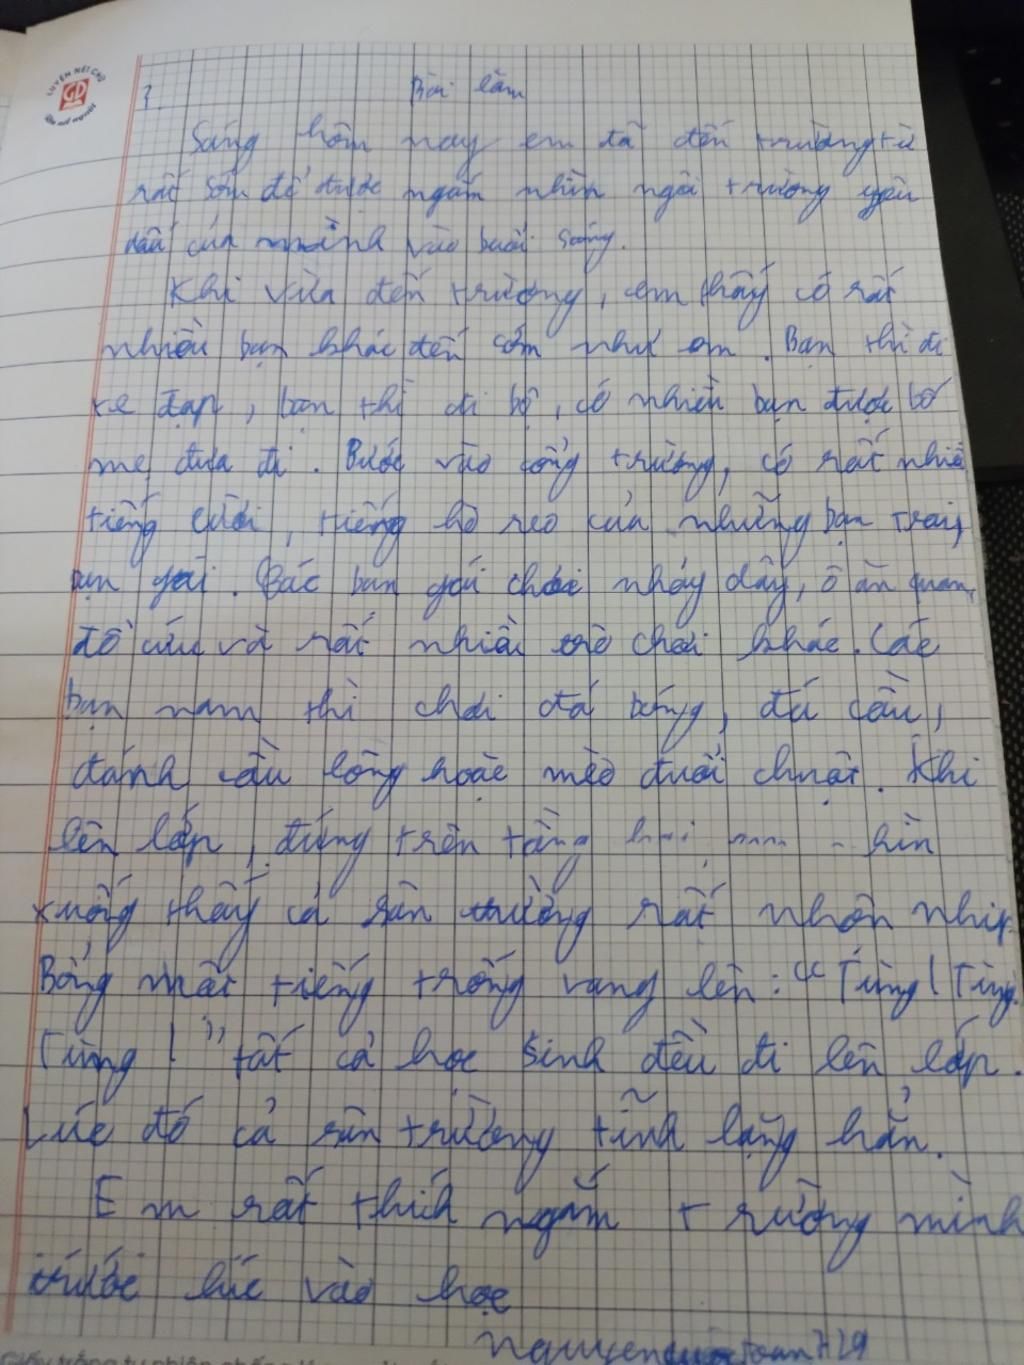 LUYỆN NÉT CHỮ
GD
Rèn nết người
3. Bài làm
Sáng hôm nay em đã đến trường từ
rất sớm để được ngắm nhìn ngôi trường yêu
dấu của mình vào buổi sáng.
Khi vừa đến trường, em thấy có rất
nhiều bạn khác đến sớm như em. Bạn thì đi
xe đạp, bạn thì đi bộ, có nhiều bạn được bố
mẹ đưa đi. Bước vào cổng trường, có rất nhiều
tiếng cười, tiếng hò reo của những bạn trai,
bạn gái. Các bạn gái chơi nhảy dây, ô ăn quan,
đồ cứu và rất nhiều trò chơi khác. Các
bạn nam thì chơi đá bóng, đá cầu,
đánh cầu lông hoặc mèo đuổi chuột. Khi
lên lớp, đứng trên tầng hai
xuống thấy cả sân trường rất nhộn nhịp.
Bỗng một tiếng trống vang lên: "Tùng! Tùng!
Tùng!" tất cả học sinh đều đi lên lớp.
Lúc đó cả sân trường tĩnh lặng hẳn.
Em rất thích ngắm trường mình
trước lúc vào học